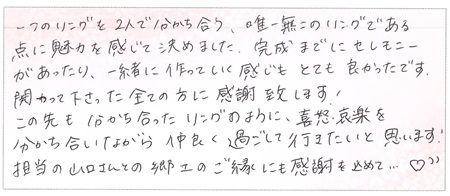 一つのリングを2人で分かち合う、唯一無二のリングである
点に魅力を感じて決めました。完成までにセレモニー
があったり、一緒に作っていく感じもとても良かったです。
関わって下さった全ての方に感謝致します!
この先も分かち合ったリングのように、喜怒哀楽を
分かち合いながら仲良く過ごして行きたいと思います!
担当の山口さんとの郷土のご縁にも感謝を込めて…♡